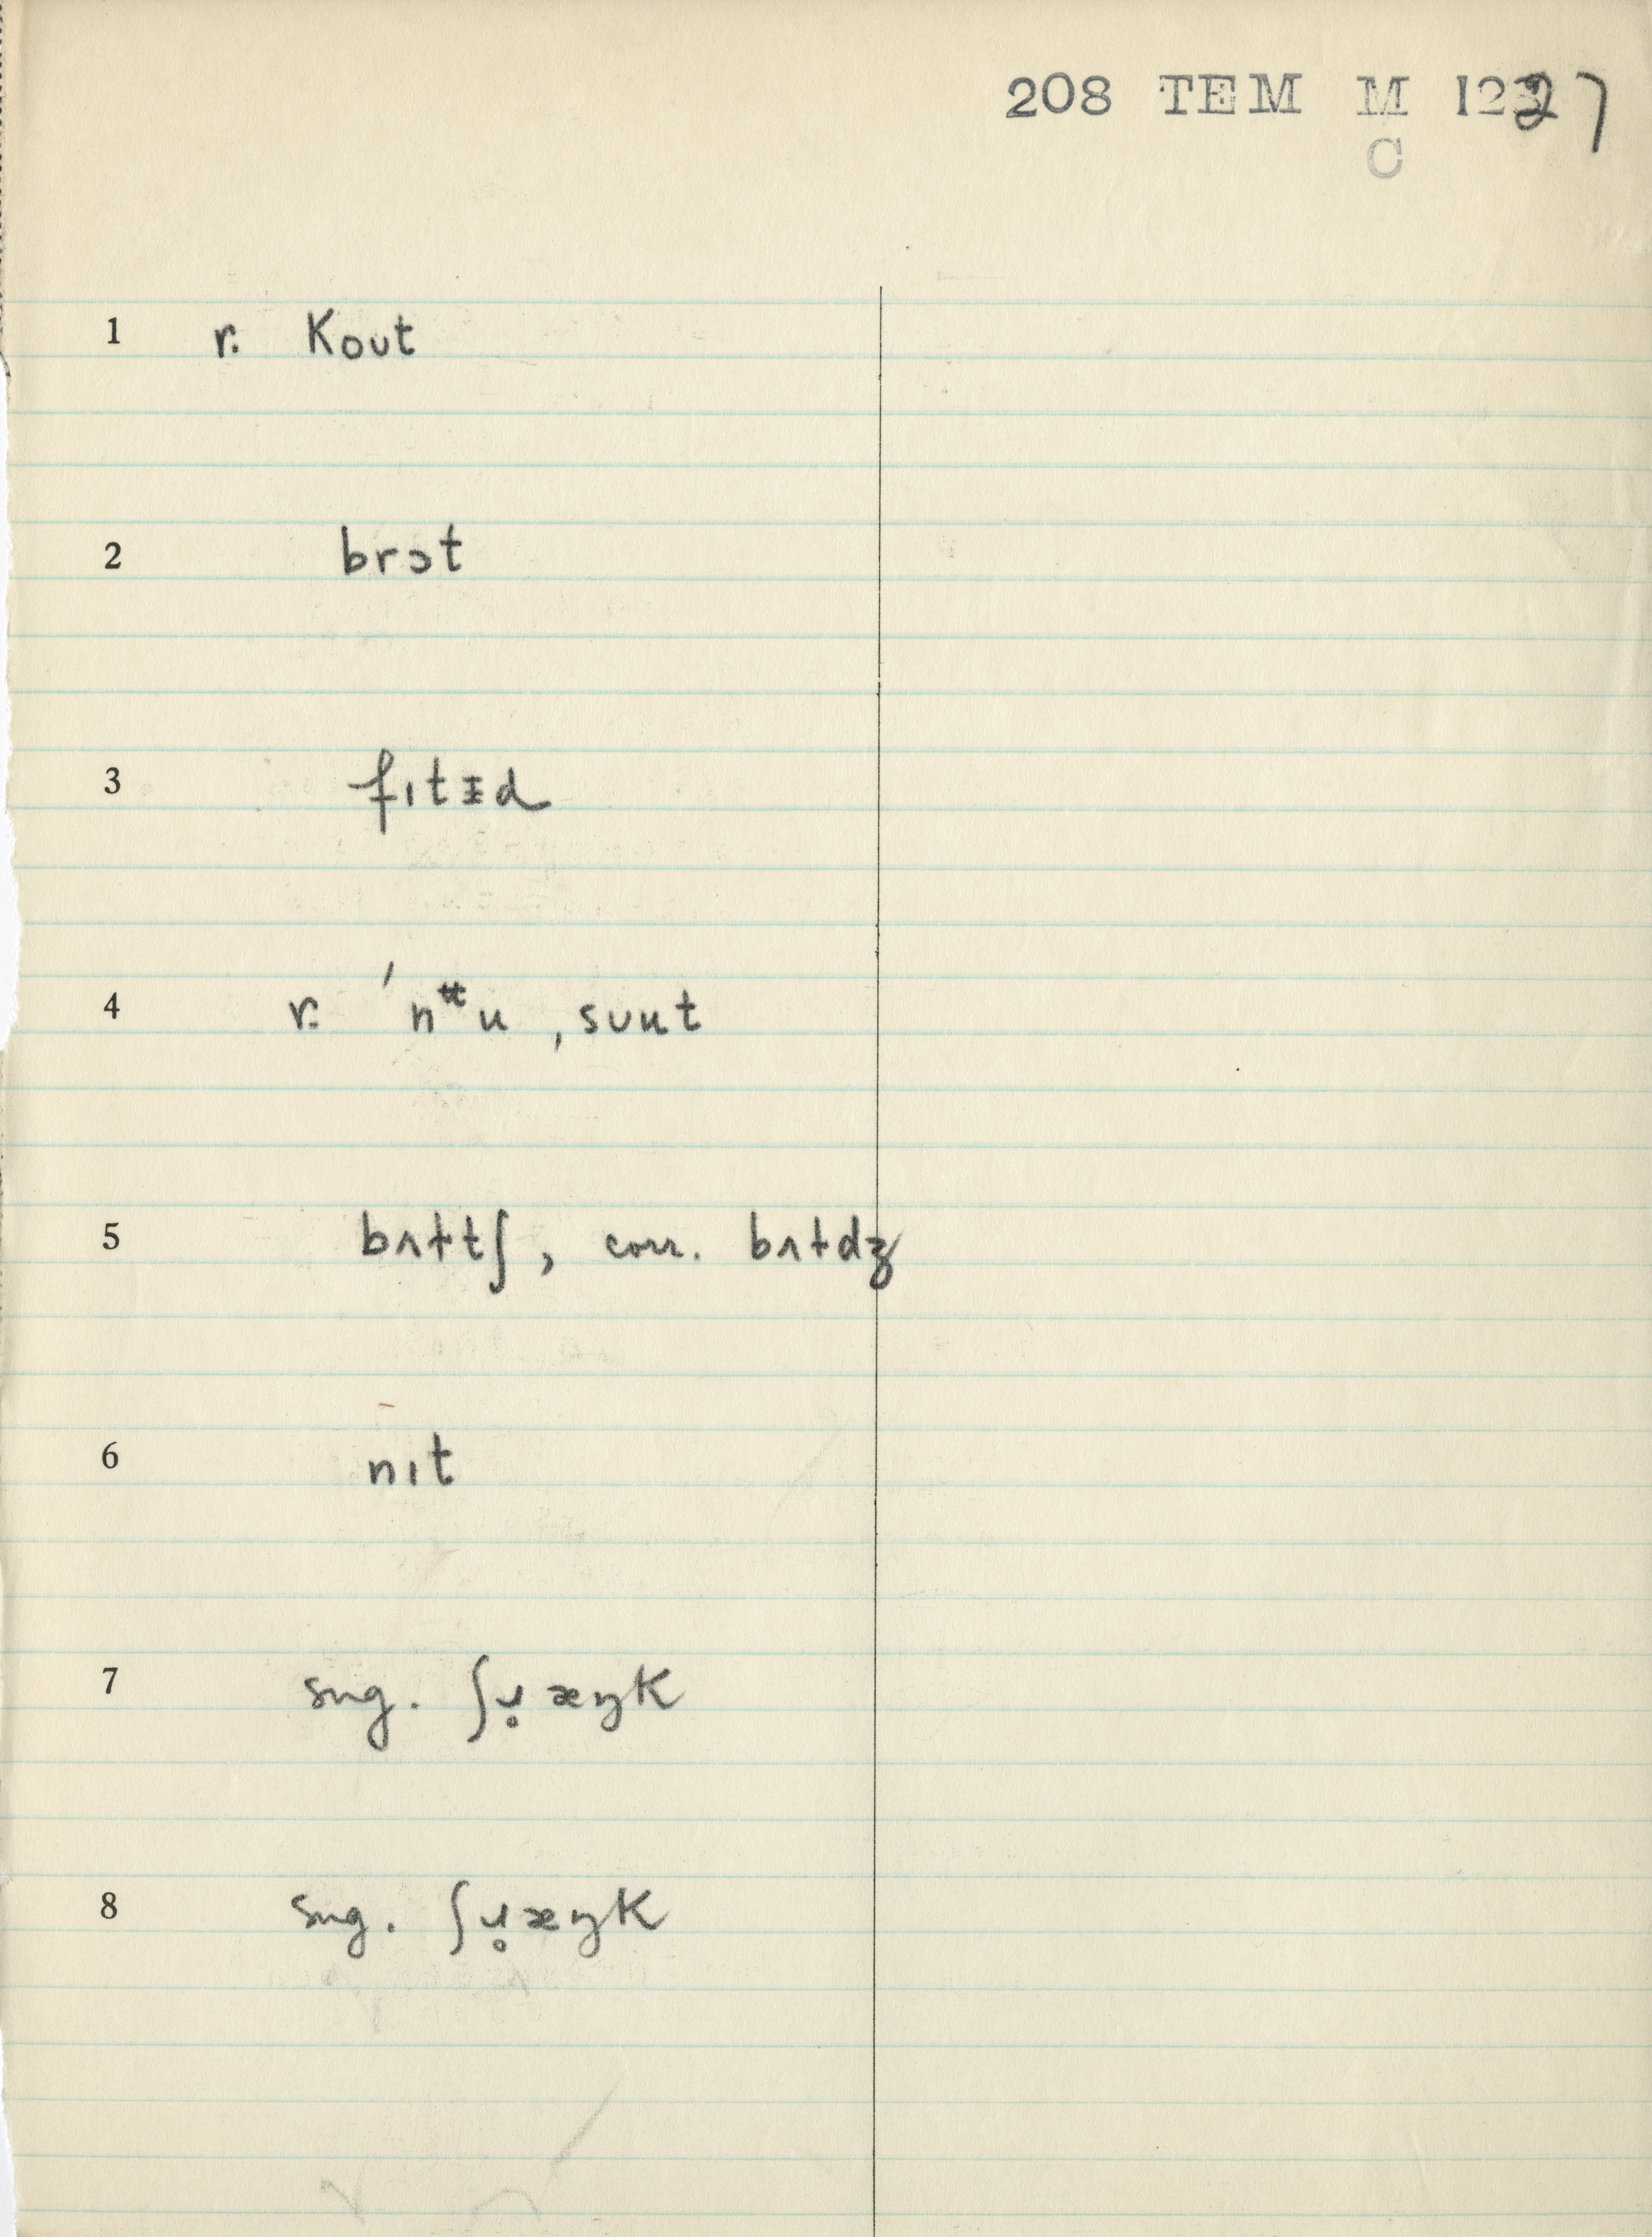 208 TEM M 1227
C
1 r. kout
2 brɔt
3 fɪtᵻd
4 r. ˈnᵗ̵u , sᴜut
5 bʌttʃ, corr. bʌtdʒ
6 nɪt
7 sug. ʃᴜ̥æŋk
8 sug. ʃᴜ̥æŋk